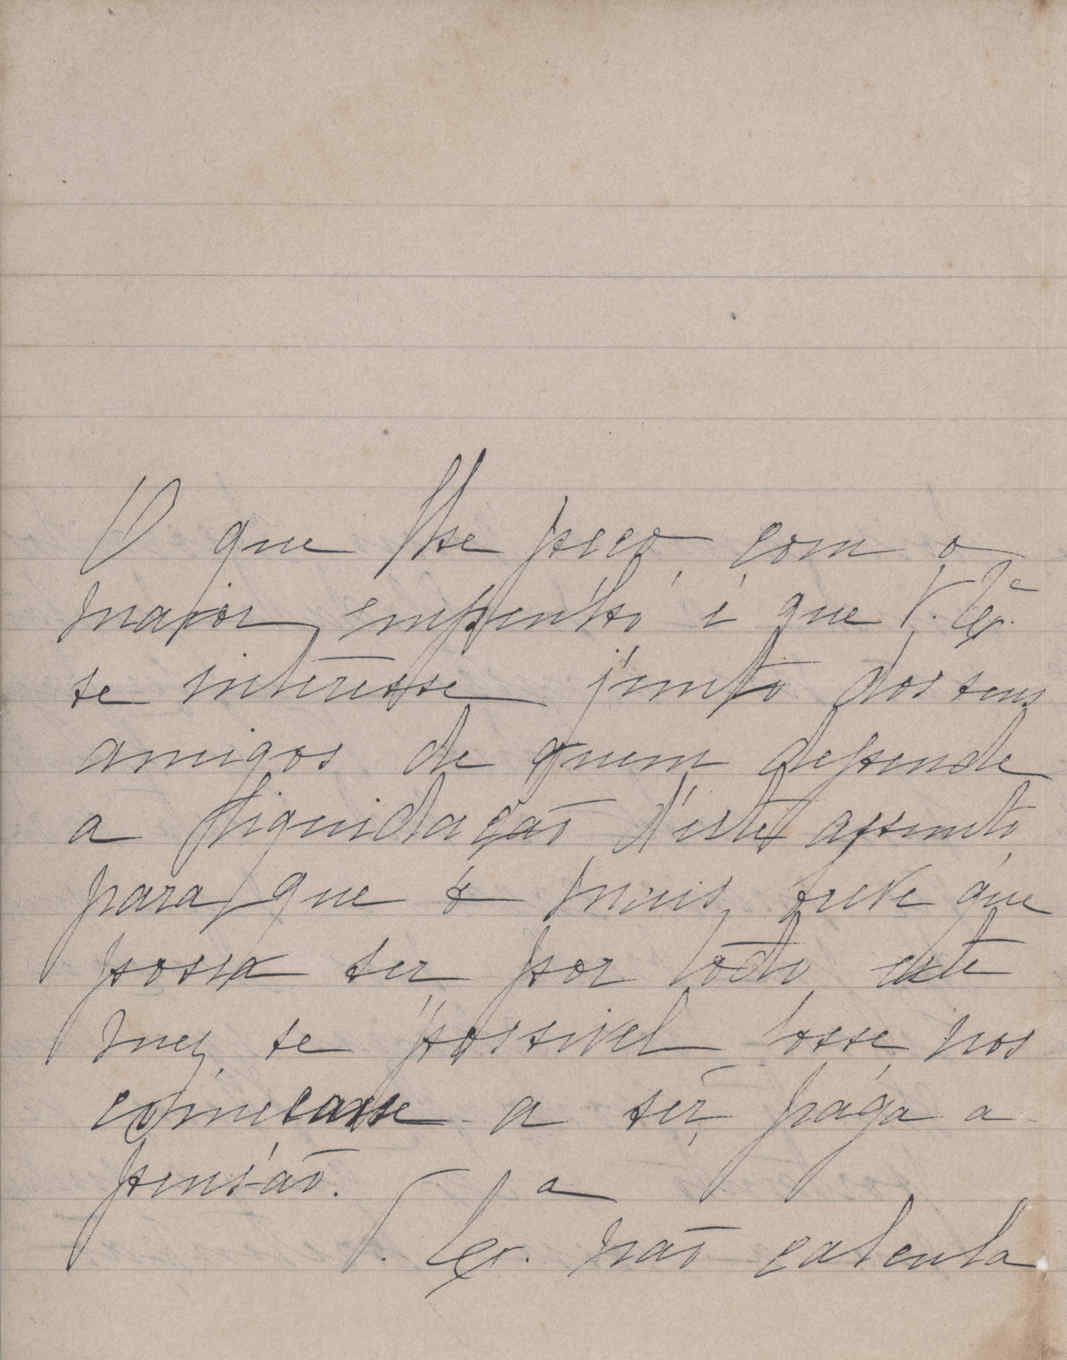 O que lhe peço com o
maior empenho é que V. Ex.ª
se interesse junto dos seus
amigos de quem depende
a liquidação d'este assumto
para que o mais breve que
possa ser por todo este
mez se possivel fosse, nos
começasse a ser paga a
pensão.
V. Ex.a não calcula